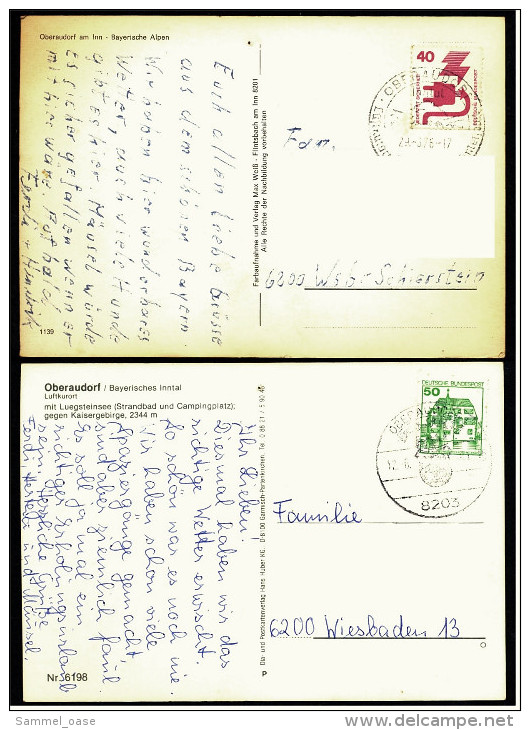 Oberaudorf am Inn - Bayerische Alpen
Euch allen liebe Grüsse
aus dem schönen Bayern.
Wir haben hier wunderbares
Wetter, auch viele Hunde
gibt es hier Mäusel würde
es sicher gefallen wenn er
mit hier wäre. Auf bald,
1139
Farbaufnahme und Verlag Max Weiß - Flintsbach am Inn 8201
Alle Rechte der Nachbildung vorbehalten
40
DEUTSCHE BUNDESPOST
Fam.
6200 Wsbr Schierstein
Oberaudorf / Bayerisches Inntal
Luftkurort
mit Luegsteinsee (Strandbad und Campingplatz);
gegen Kaisergebirge, 2344 m
Ihr Lieben!
Diesmal haben wir das
richtige Wetter erwischt.
So schön war es noch nie.
Wir haben schon viele
Spaziergänge gemacht,
sind aber ziemlich faul.
Es soll ja mal ein
richtiger Erholungsurlaub
sein. Herzliche Grüße
Ferdi, Herta und Mäusel.
Nr. 6198
Dia- und Postkartenverlag Hans Huber KG, D 8100 Garmisch-Partenkirchen
P
50
DEUTSCHE BUNDESPOST
8203
Familie
6200 Wiesbaden 13
Sammel_oase
delcampe.net